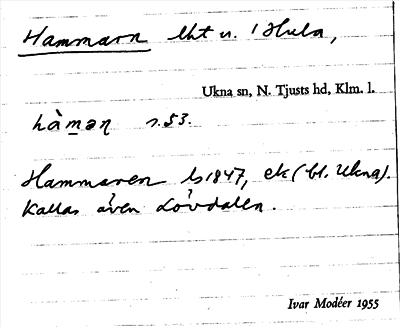 Hammarn lht u. Hula,
Ukna sn, N. Tjusts hd, Klm. l.
hàməɳ s. 53.
Hammaren ls 1847, ek (bl. Ukna).
Kallas även Lövdalen.
Ivar Modéer 1955